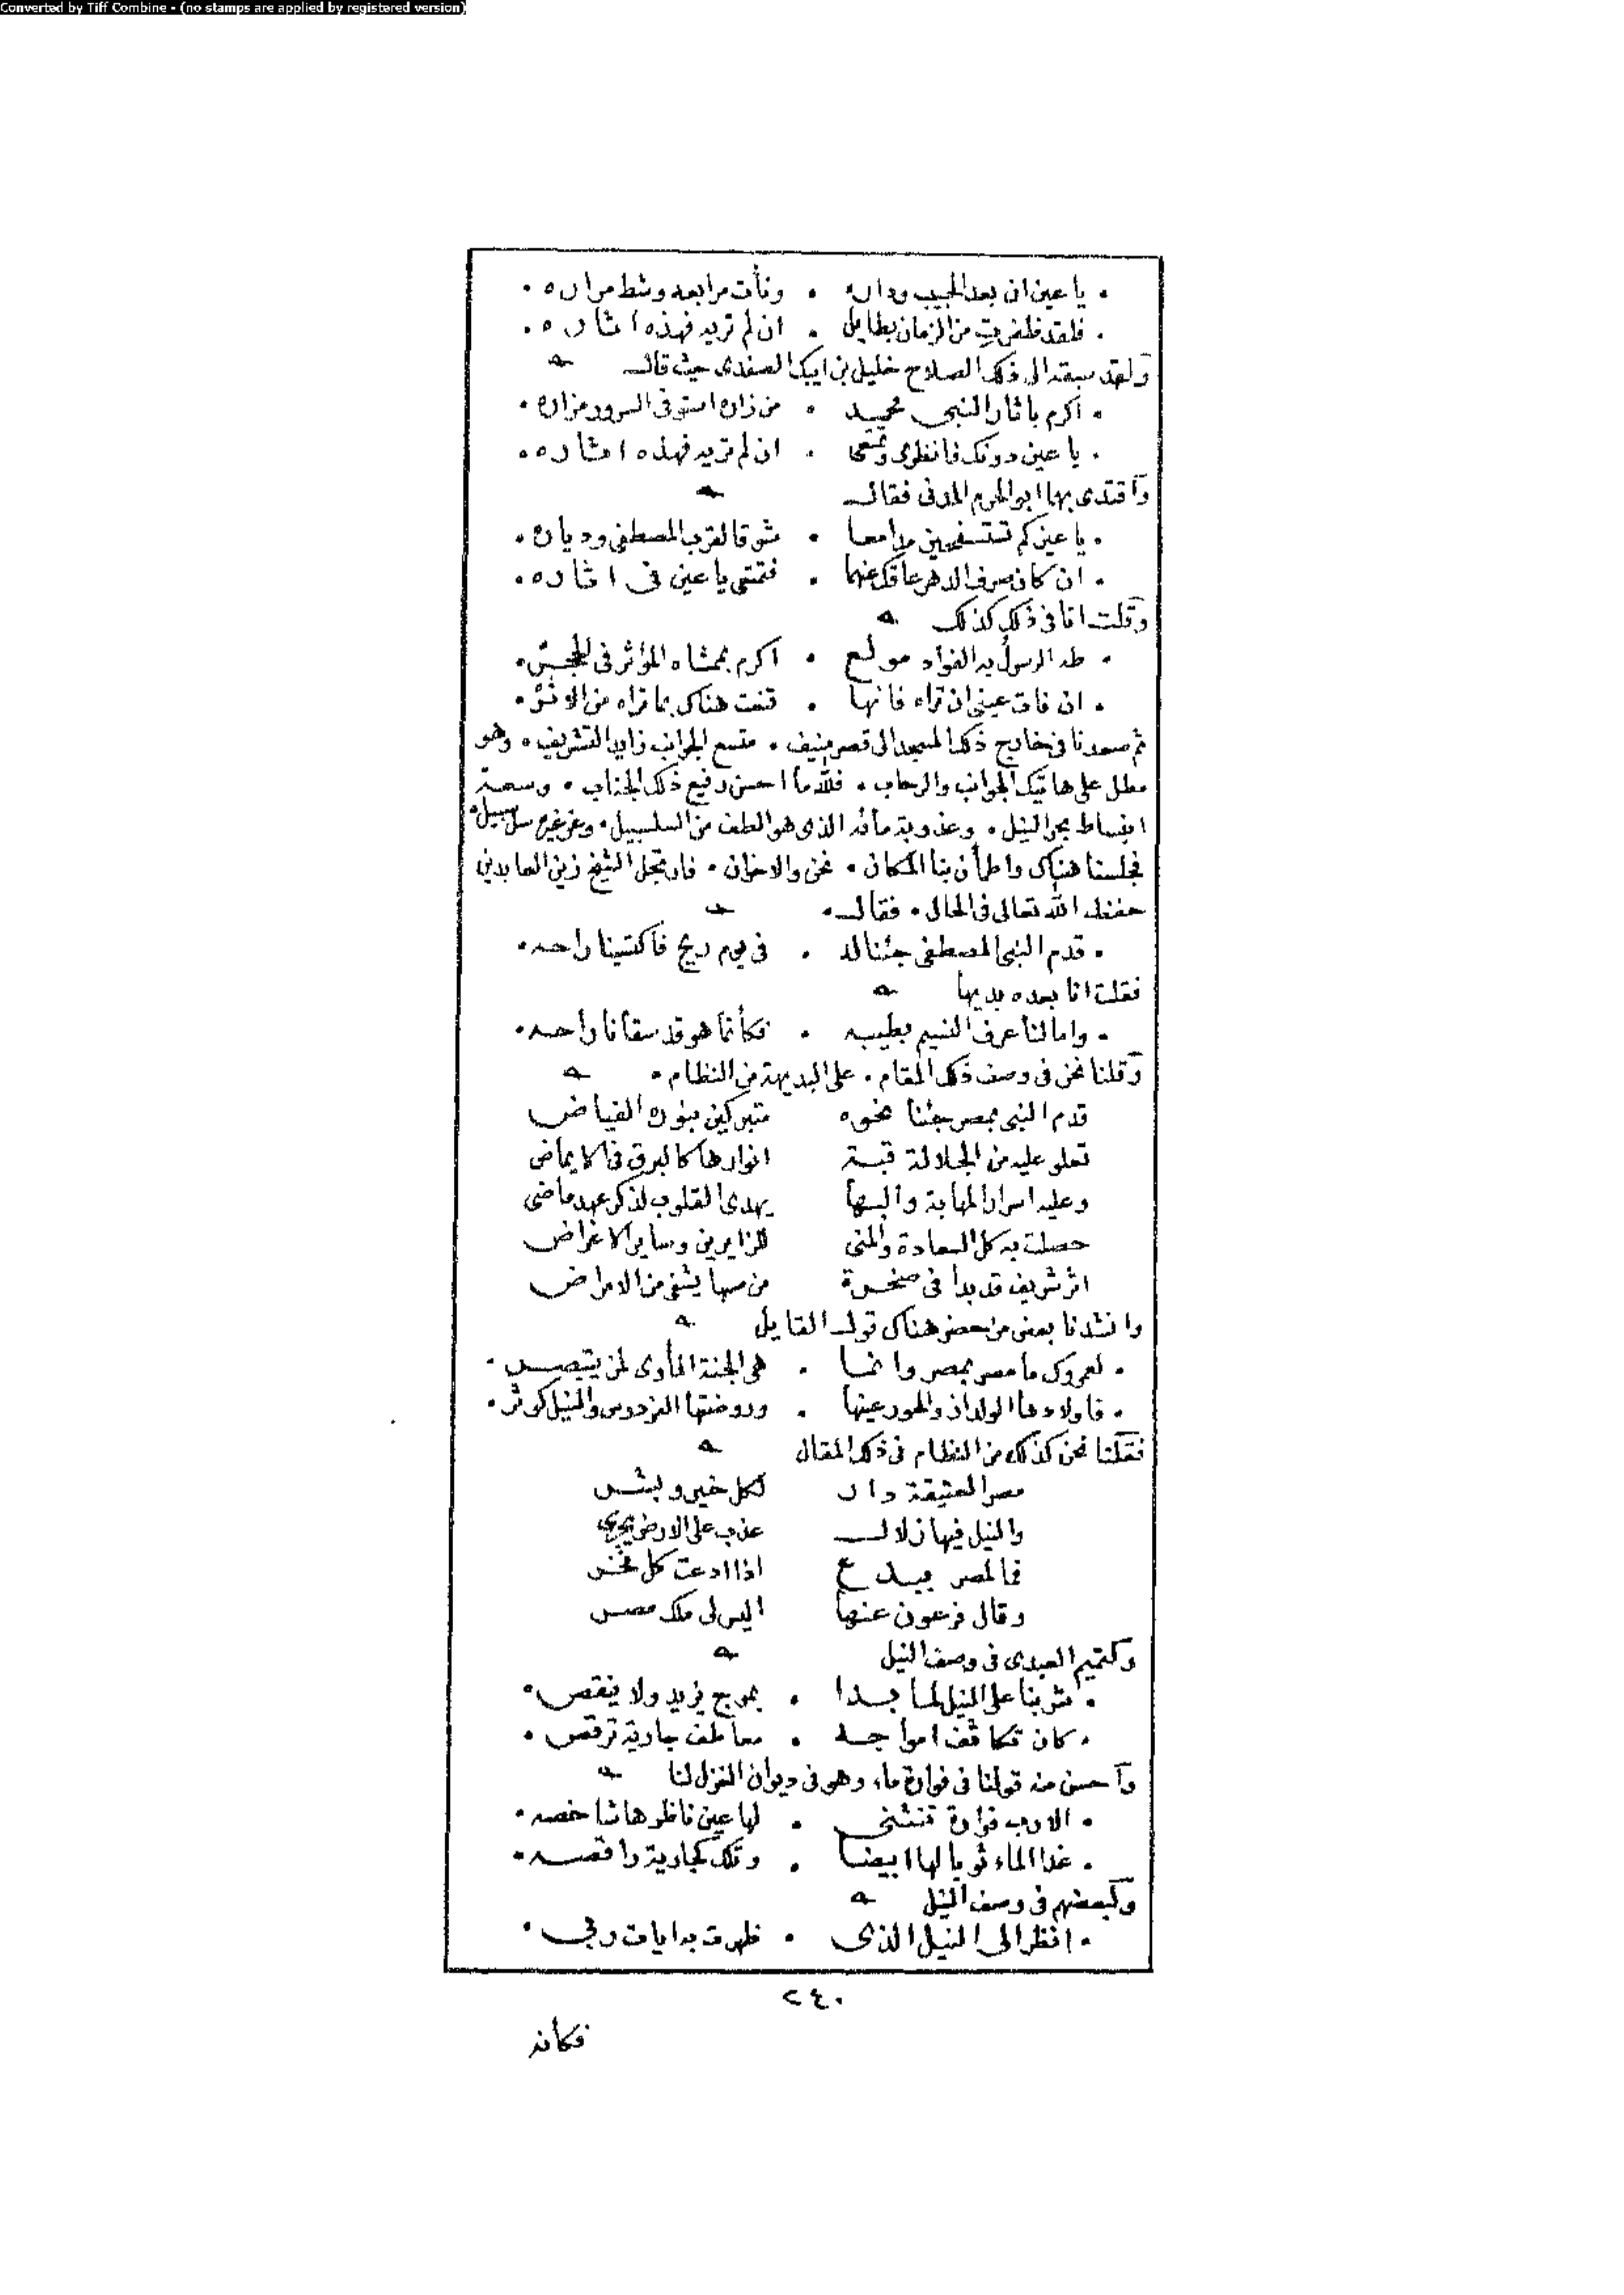 Converted by Tiff Combine - (no stamps are applied by registered version)
• يا عين ان بعد الحبيب وداره • ونأت مرابعه وشط مزاره •
• فلقد ظفرت من الزمان بطايل • ان لم تريه فهذه اثاره •
ولقد سبقه الى ذلك الصلاح خليل بن ايبك الصفدى حيث قال
• اكرم باثار النبى محمد • من زاره استوفى السرور مزاره •
• يا عين دونك فانظرى وتمتعى • ان لم تريه فهذه اثاره •
واقتدى بهما ابو الحرم المدنى فقال
• يا عين كم تستسفحين مدامعا • شوقا لقرب المصطفى ودياره •
• ان كان صرف الدهر عاقك عنهما • فتمتعى يا عين فى اثاره •
وقلت انا فى ذلك كذلك
• طه الرسول به الفواد مولع • اكرم بممشاه المؤثر فى الحجر •
• ان فات عينى ان تراه فانها • قنعت هناك بما تراه من الاثر •
ثم صعدنا فى خارج ذلك المسجد الى قصر منيف • متسع الجوانب زايد التشريف • وهو
مطل على هاتيك الجوانب والرحاب • فلله ما احسن رفيع ذلك الجناب • وسعة
انبساط بحر النيل • وعذوبة مائه الذى هو الطف من السلسبيل • وعن غيره سل سبيل •
فجلسنا هناك واطمأن بنا المكان • نحن والاخوان • فارتجل الشيخ زين العابدين
حفظه الله تعالى فى الحال • فقال •
• قدم النبى المصطفى جئنا له • فى يوم ريح فاكتسينا راحه •
فقلت انا بعده بديها
• واما لنا عرف النسيم بطيبه • فكأنما هو قد سقانا راحه •
وقلنا نحن فى وصف ذلك المقام • على البديهة من النظام •
قدم النبى بمصر جئنا نحوه متبركين بنوره الفياض
تعلو عليه من الجلالة قبة انوارها كالبرق فى الايماض
وعليه اسرار المهابة والبها يهدى القلوب لذكر عهد ماضى
حصلت به كل السعادة والمنى للزايرين وساير الاغراض
اثر شريف قد بدا فى صخرة من مسها يشفى من الامراض
وانشدنا بعض من حضر هناك قول القايل
• لعمرك ما مصر بمصر وانما • هى الجنة المأوى لمن يتبصر •
• فاولادها الولدان والحور عينها • وروضتها الفردوس والنيل كوثر •
فقلنا نحن كذلك من النظام فى ذلك المقال
مصر العتيقة دار لكل خير وبشر
والنيل فيها زلال عذب على الارض يجرى
فما لمصر ببدع اذا ادعت كل فخر
وقال فرعون عنها اليس لى ملك مصر
ولتميم العبدى فى وصف النيل
• شربنا على النيل لما بدا • بموج يزيد ولا ينقص •
• كان تكاثف امواجه • معاطف جارية ترقص •
واحسن منه قولنا فى فوارة ماء وهو فى ديوان الغزل لنا
• الا رب فوارة تنثنى • لها عين ناظرها شاخصه •
• غدا الماء ثوبا لها ابيضا • وتلك كجارية راقصه •
ولبعضهم فى وصف النيل
• انظر الى النيل الذى • ظهرت به ايات ربى •
٢٤٠
فكأنه